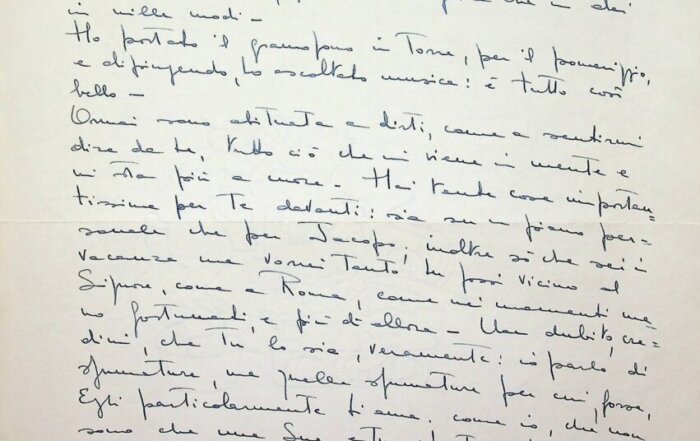 che in dei
in mille modi -
Ho portato il gramofono in Torre, per il pomeriggio,
e dipingendo, ho ascoltato musica: è tutto così
bello -
Ormai sono abituata a dirti, come a sentirmi
dire da te, tutto ciò che mi viene in mente e
mi sta più a cuore - Hai tante cose importan=
tissime per Te davanti: sia su un piano per=
sonale che per Jacopo; inoltre sò che sei in
vacanza ma vorrei tanto tu fossi vicino al
Signore, come a Roma, come nei momenti me=
no fortunati, e più di allora - Non dubito, cre=
dimi, che Tu lo sia, veramente: io parlo di
sfumature, ma quelle sfumature per cui, forse,
Egli particolarmente ti ama. come io, che non
sono che una Sua